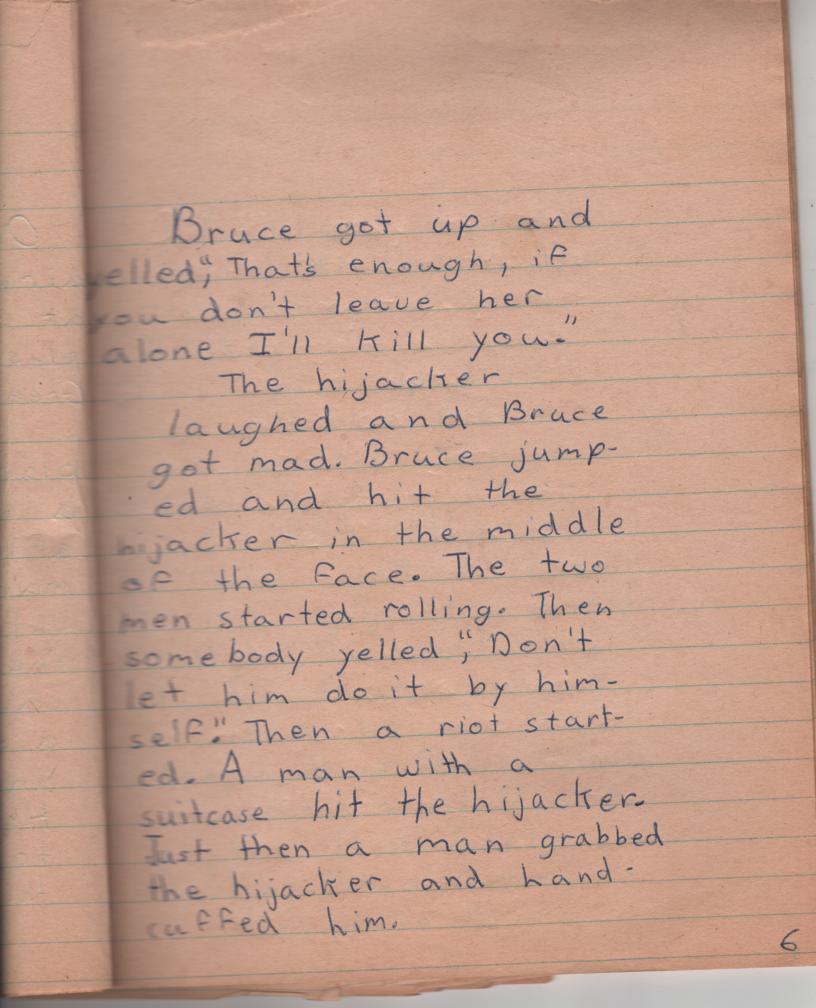 Bruce got up and
yelled", That's enough, if
you don't leave her
alone I'll kill you."
The hijacker
laughed and Bruce
got mad. Bruce jump-
ed and hit the
hijacker in the middle
of the face. The two
men started rolling. Then
somebody yelled", Don't
let him do it by him-
self." Then a riot start-
ed. A man with a
suitcase hit the hijacker.
Just then a man grabbed
the hijacker and hand-
cuffed him.
6